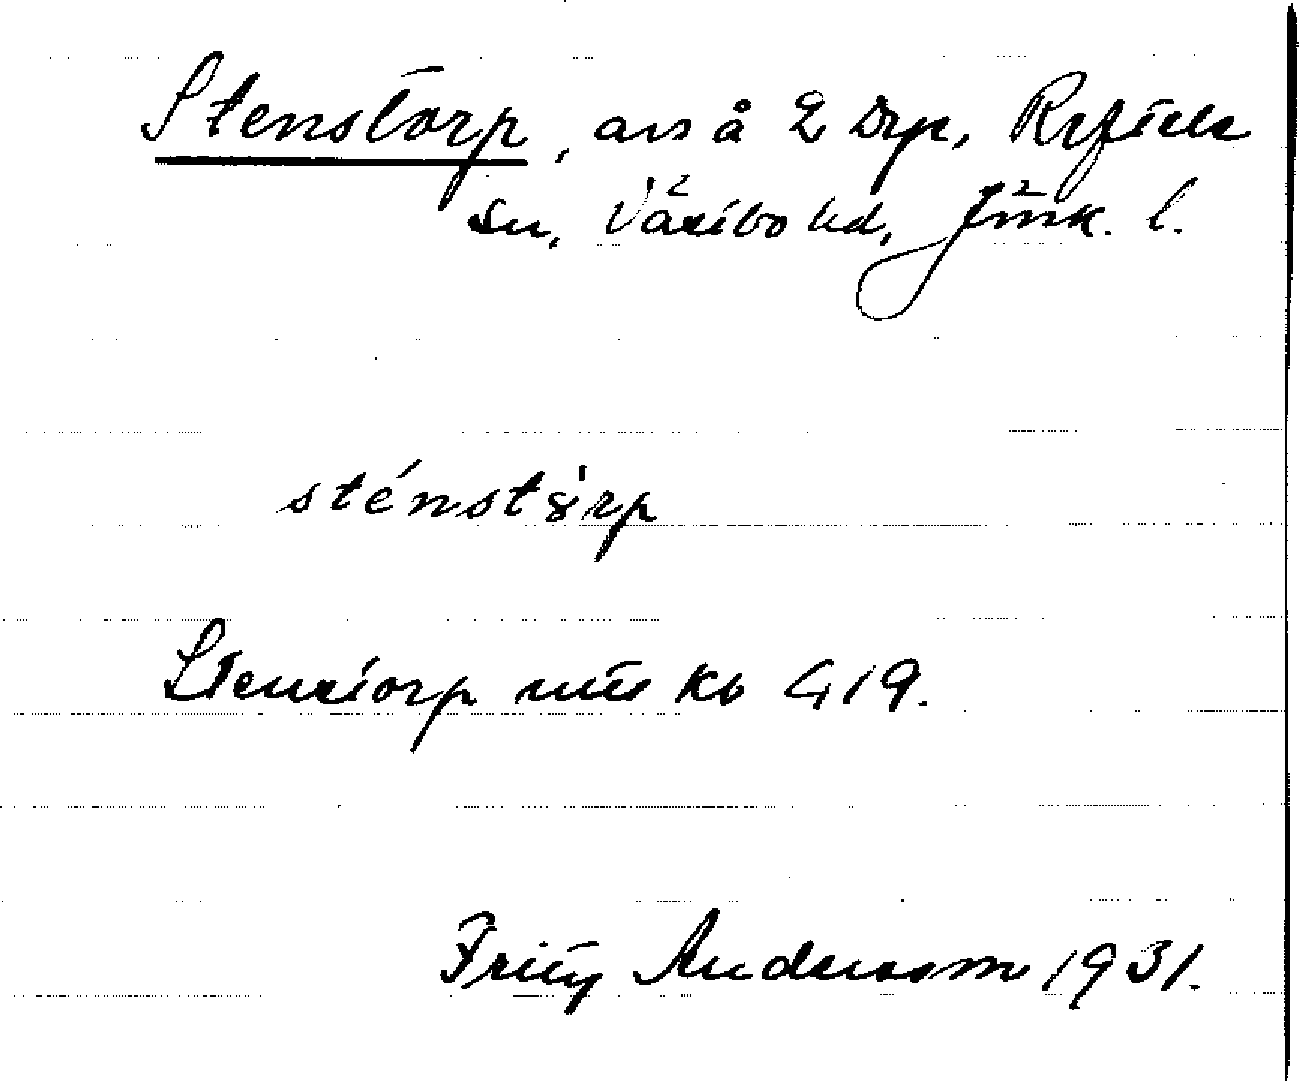 Stenstorp, avs å 2 Drp, Ryftele
sn, Västbo hd, Jönk. l.
sténstȣ̀rp
Stenstorp uts kb 419.
Frity Andersson 1931.